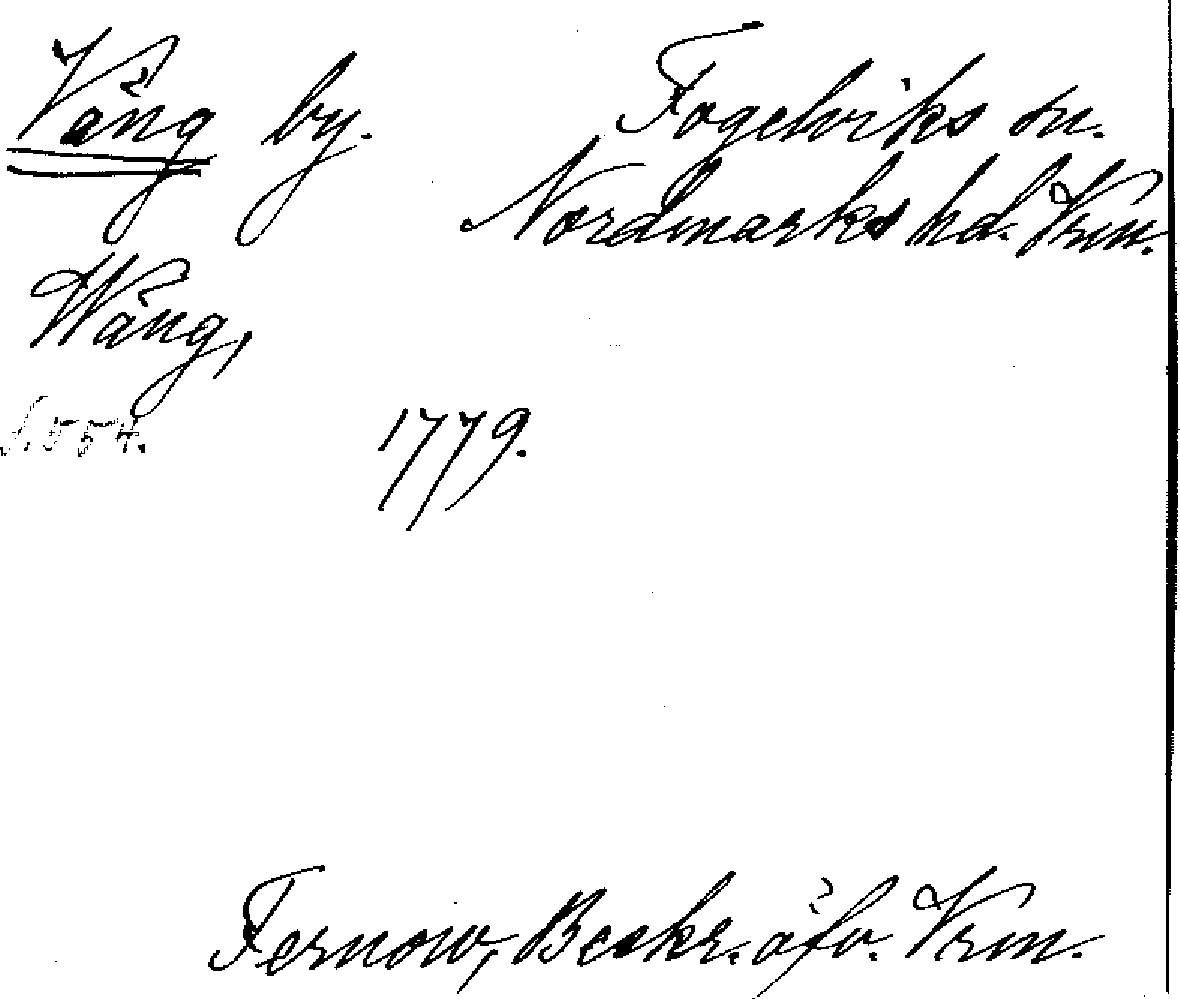 Vång by. Fogelviks sn.
Nordmarks hd. Vrm.
Wång,
S. 554. 1779.
Fernow, Beskr. öfv. Vrm.